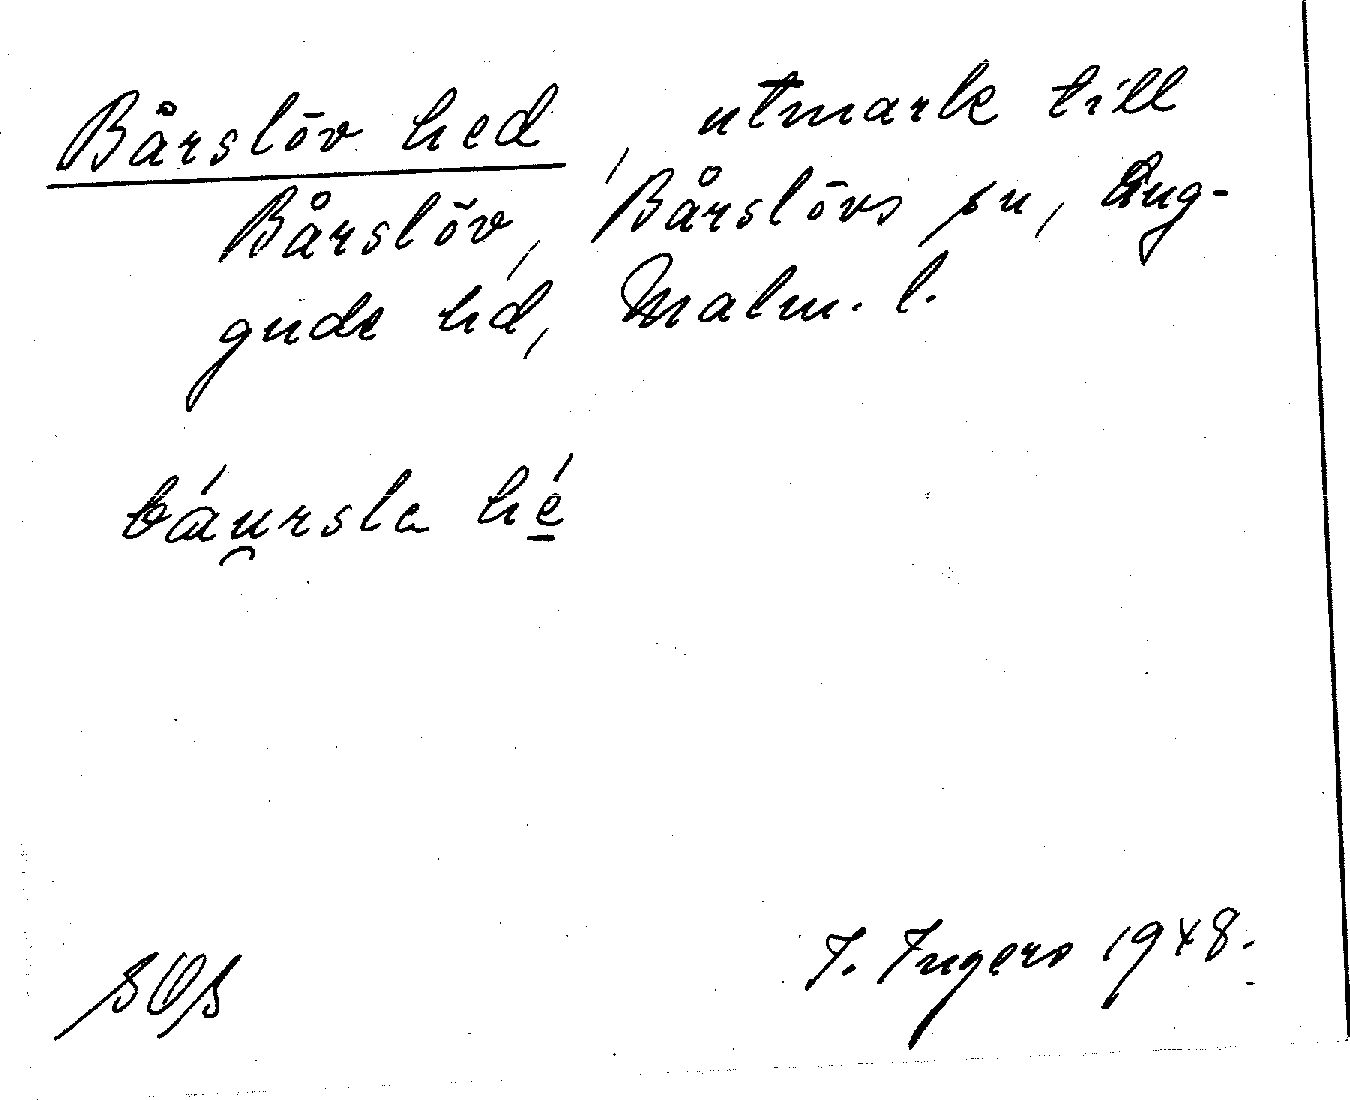 Bårslöv hed, utmark till
Bårslöv, Bårslövs sn, Lug-
gude hd, Malm. l.
báu̯rsla hé̱
I. Ingers 1948.